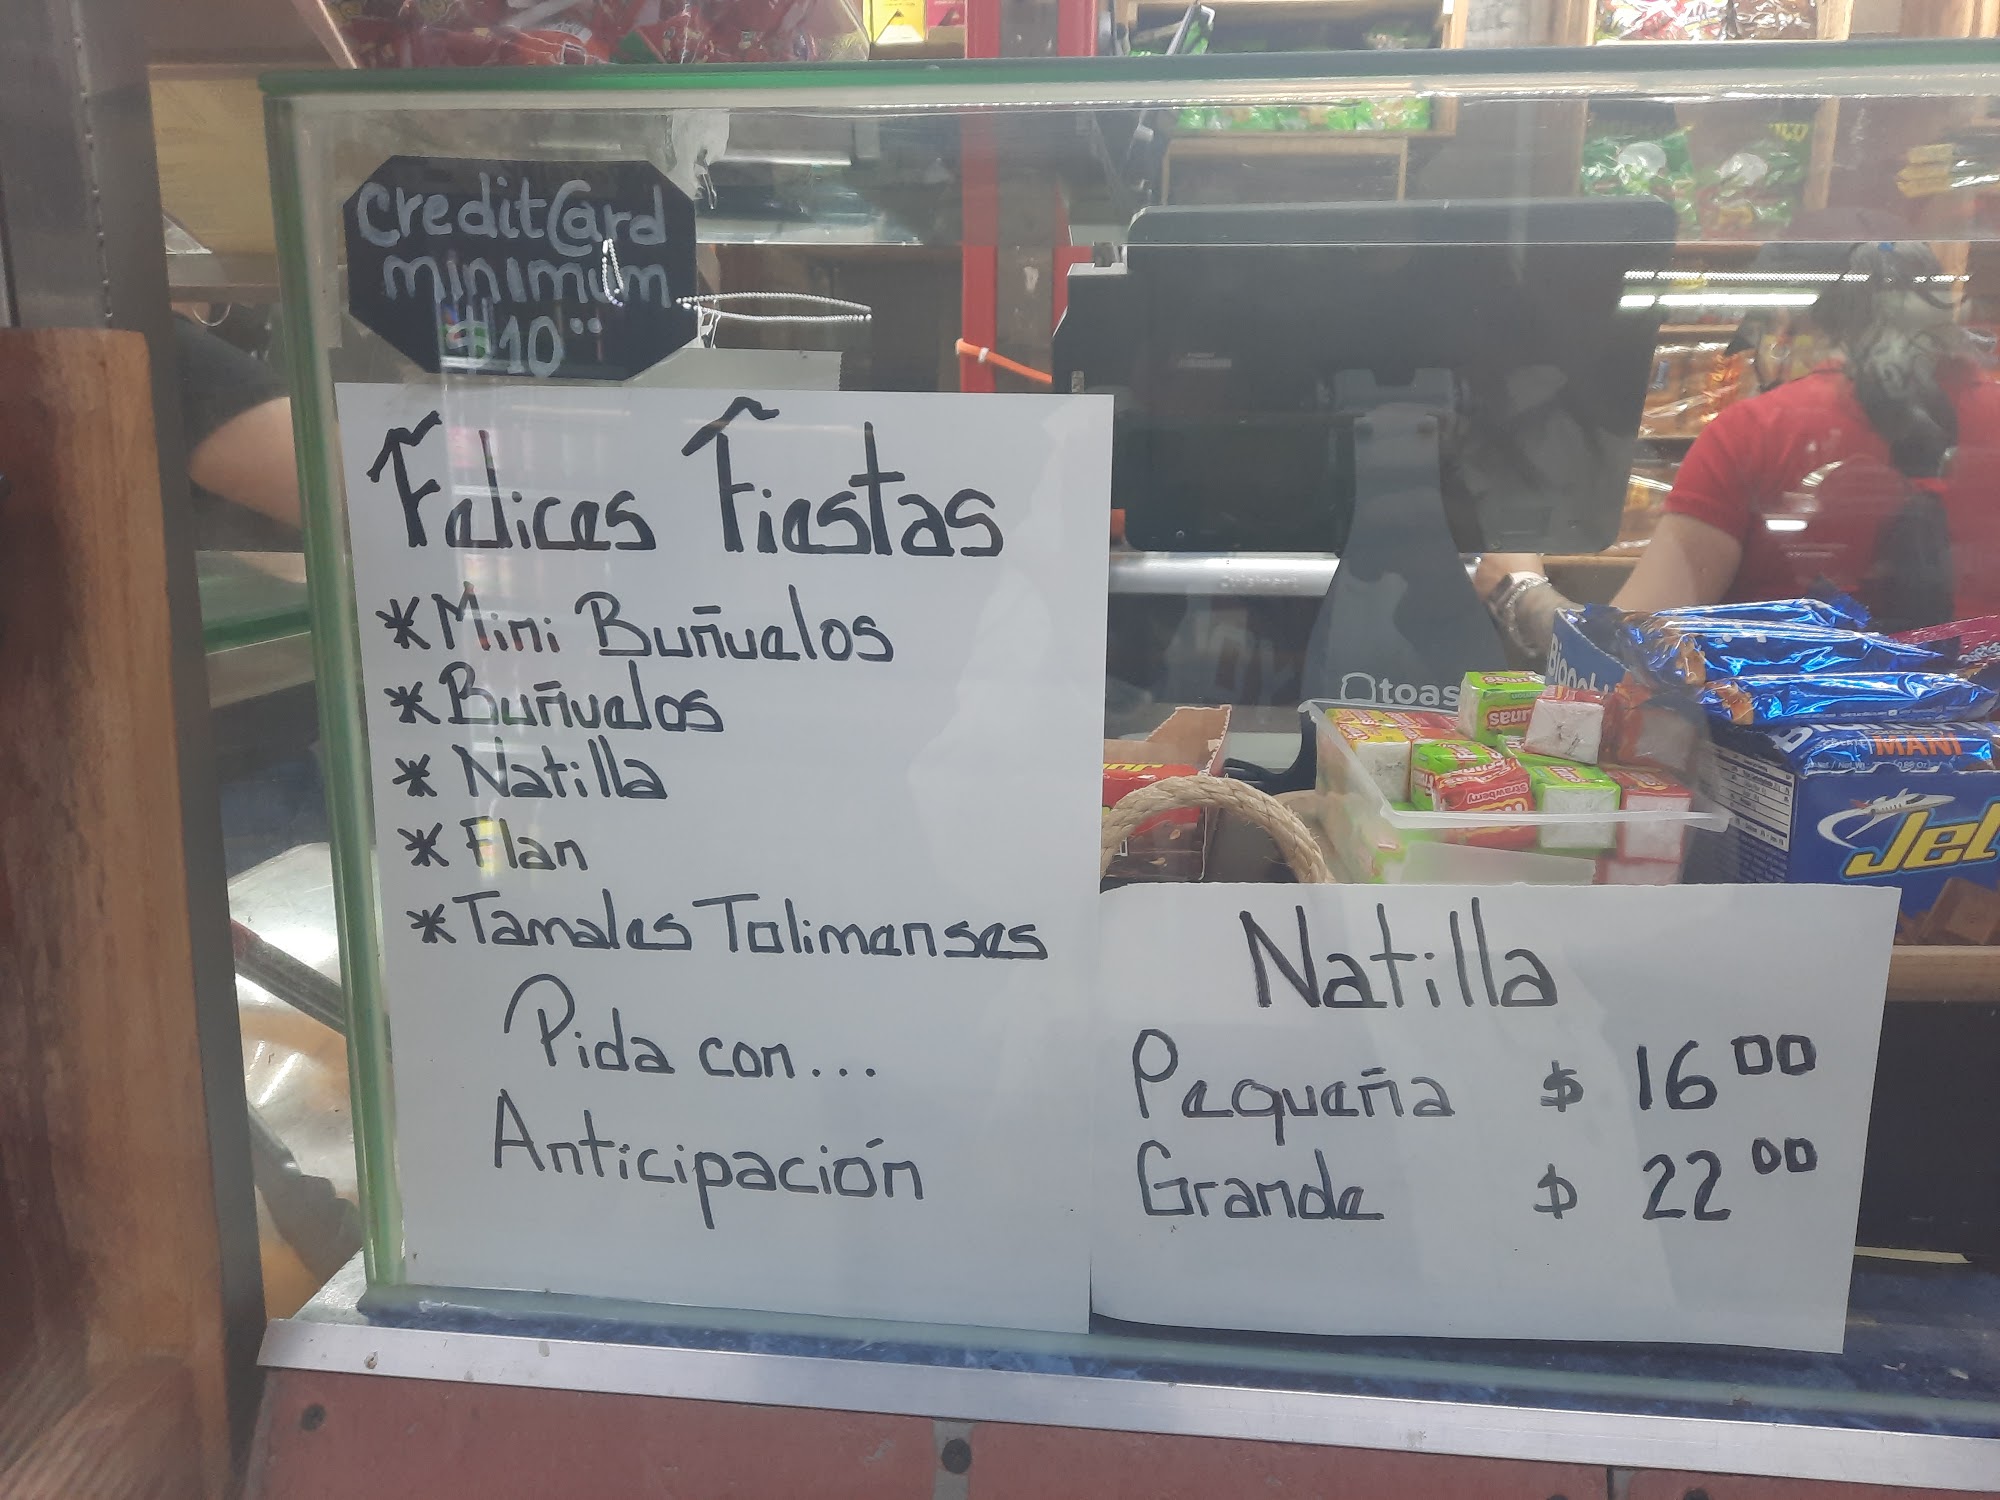 CreditCard
minimum
$10°°
Felices Fiestas
* Mini Buñuelos
* Buñuelos
* Natilla
* Flan
* Tamales Tolimenses
Pida con...
Anticipación
Natilla
Pequeña $ 16 00
Grande $ 22 00
toas
MANI
Jet
Strawberry